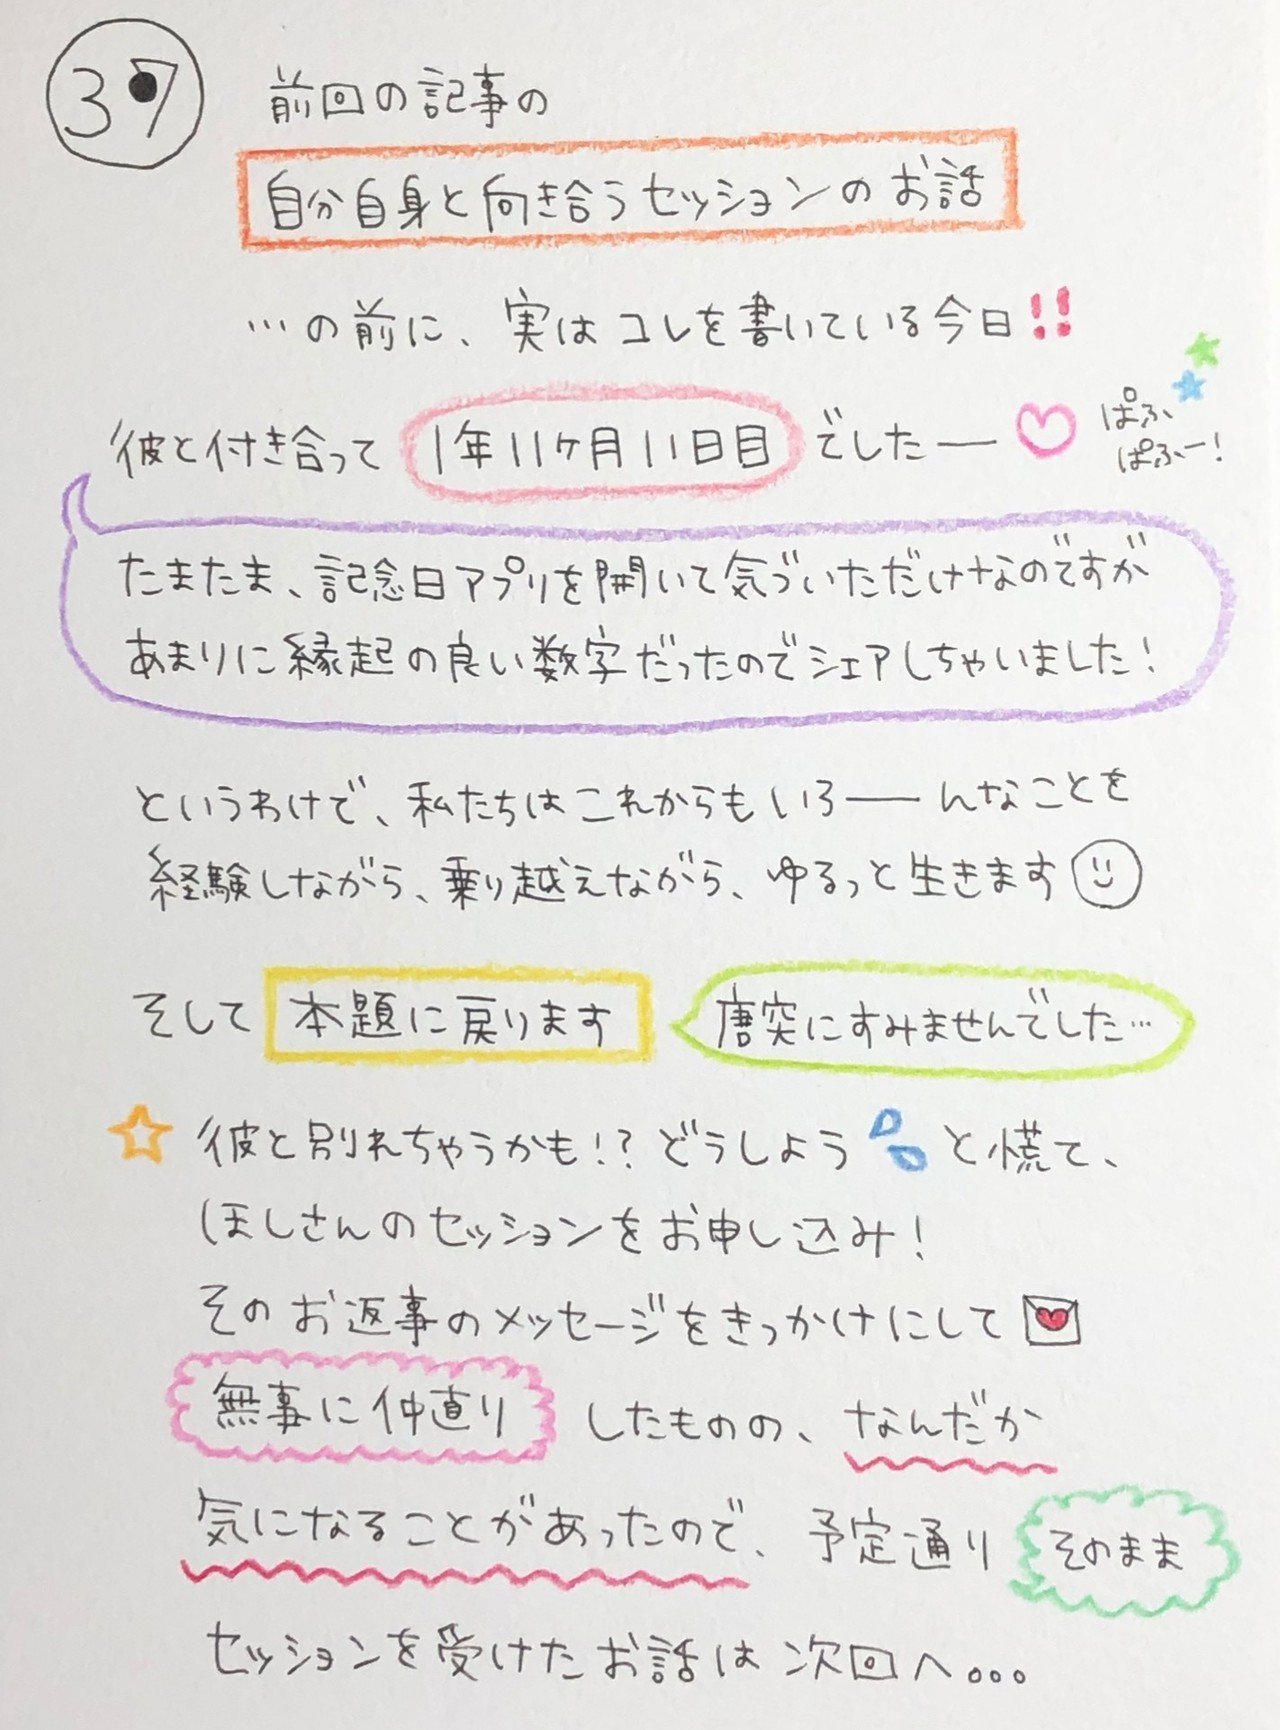 37
前回の記事の
自分自身と向き合うセッションのお話
…の前に、実はコレを書いている今日!!
彼と付き合って 1年11ヶ月11日目 でしたー♡
ぱふ
ぱふー!
たまたま、記念日アプリを開いて気づいただけなのですが
あまりに縁起の良い数字だったのでシェアしちゃいました!
というわけで、私たちはこれからもいろーーんなことを
経験しながら、乗り越えながら、ゆるっと生きます
そして 本題に戻ります 唐突にすみませんでした…
☆ 彼と別れちゃうかも!?どうしよう と慌て、
ほしさんのセッションをお申し込み!
そのお返事のメッセージをきっかけにして
無事に仲直り したものの、なんだか
気になることがあったので、予定通り そのまま
セッションを受けたお話は次回へ。。。